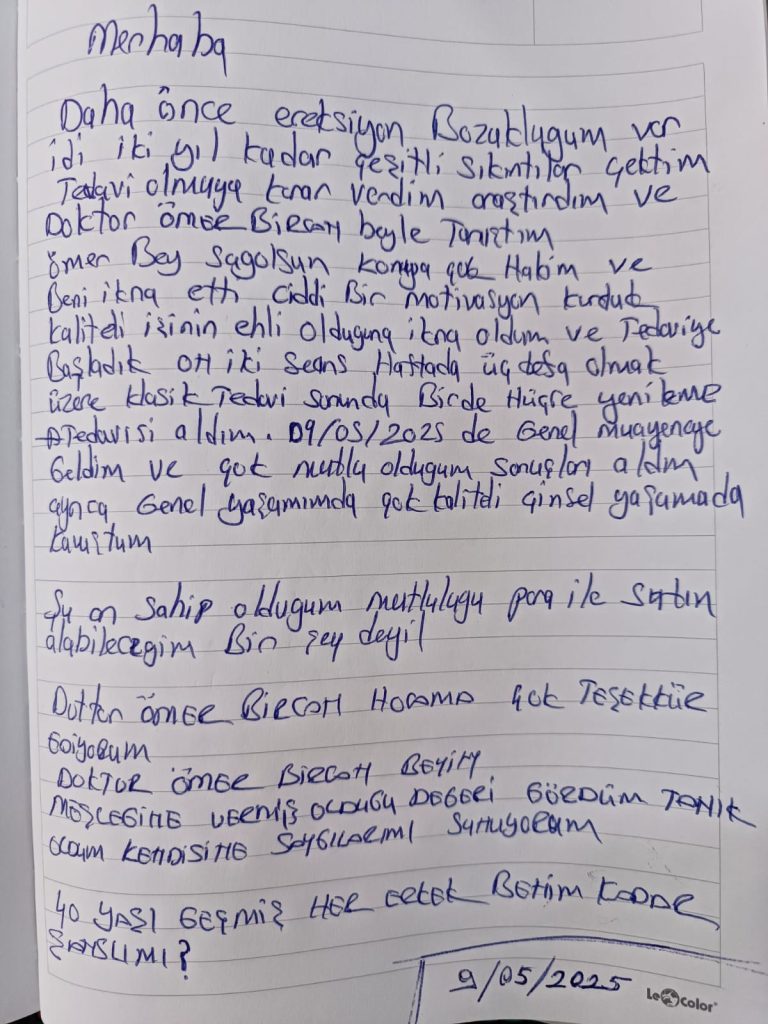 Merhaba
Daha önce ereksiyon Bozuklugum var
idi iki yıl kadar çeşitli sıkıntılar çektim
Tedavi olmaya karar verdim araştırdım ve
Doktor ÖMER BİRCAN beyle Tanıştım
ömer Bey sagolsun konuya çok Hakim ve
Beni ikna etti ciddi Bir motivasyon kurduk
kaliteli işinin ehli olduguna ikna oldum ve Tedaviye
Başladık on iki seans Haftada üç defa olmak
üzere klasik Tedavi sonunda Birde Hücre yenileme
Tedavisi aldım. 09/05/2025 de Genel muayeneye
Geldim ve çok mutlu oldugum sonuçları aldım
ayrıca Genel yaşamımda çok kaliteli cinsel yaşamada
kavuştum
Şu an sahip oldugum mutlulugu para ile satın
alabilecegim Bir şey deyil
Doktor ÖMER BİRCAN HOCAMA ÇOK TEŞEKKÜR
EDİYORUM
DOKTOR ÖMER BİRCAN BEYİN
MESLEGİNE VERMİŞ OLDUGU DEGERİ GÖRDÜM TANIK
OLDUM KENDİSİNE SAYGILARIMI SUNUYORUM
40 YAŞI GEÇMİŞ HER ERKEK BENİM KADAR
ŞANSLIMI?
9/05/2025
Le Color